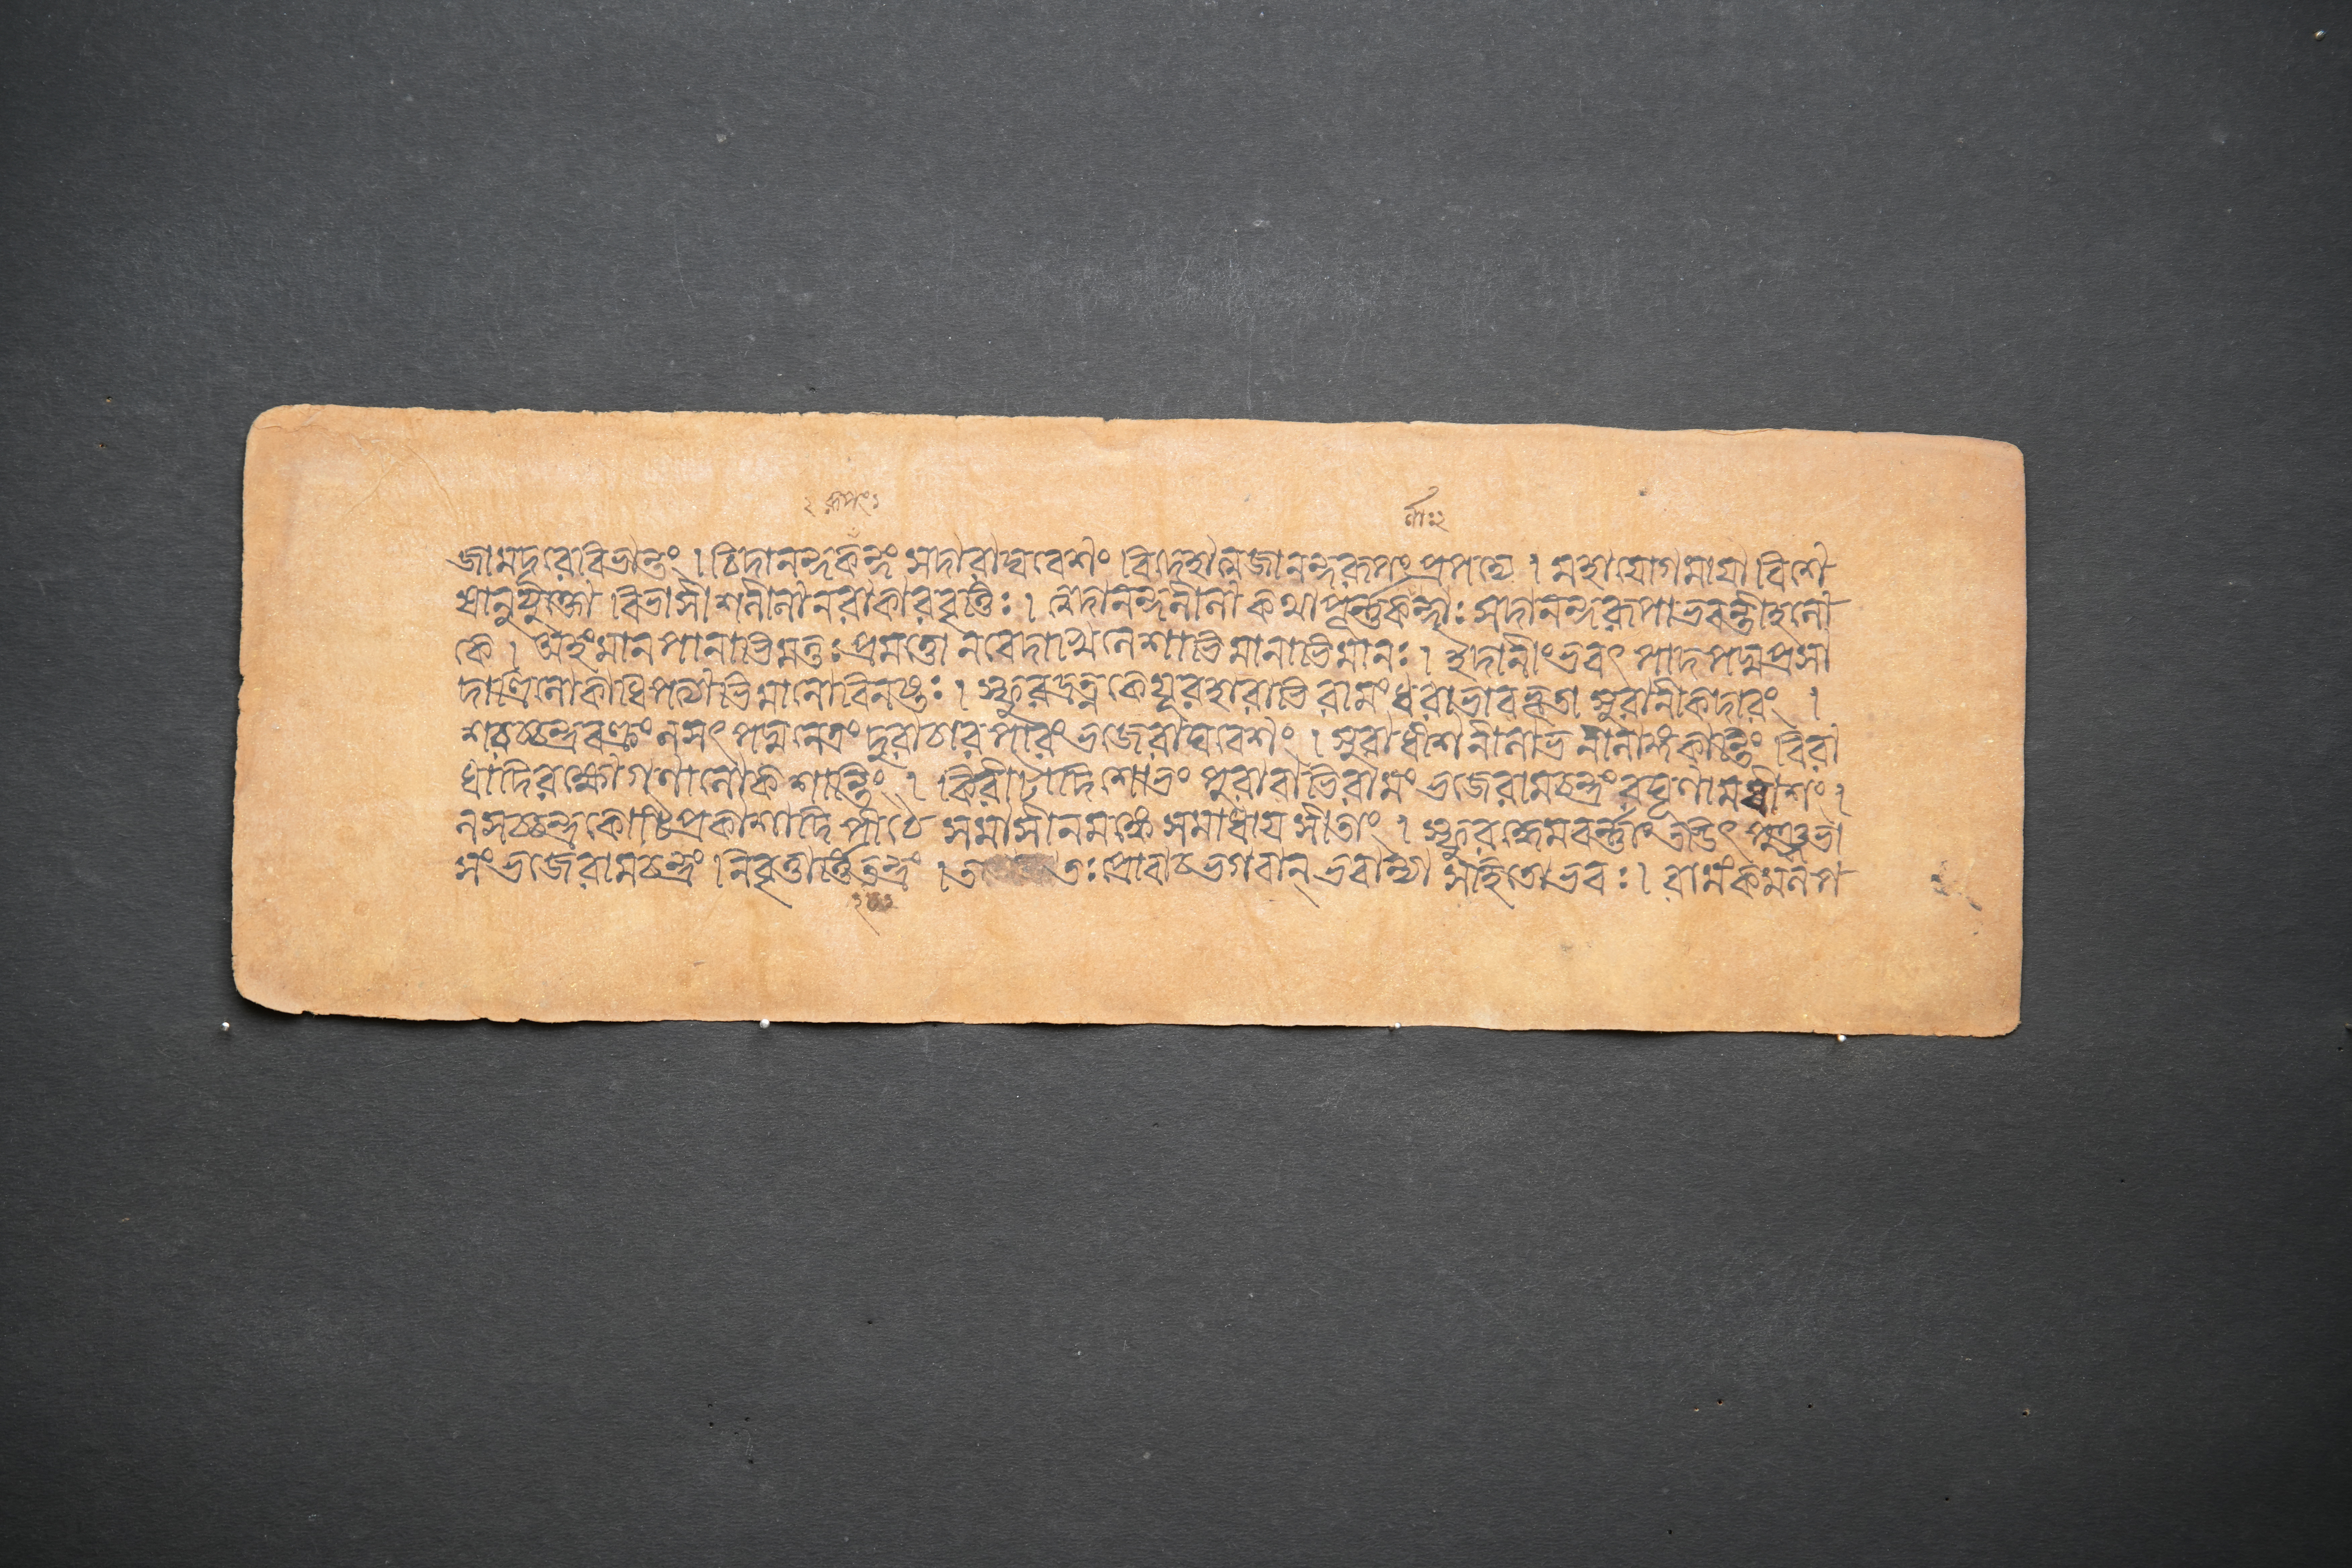 ২ রূপং১ র্ণাঃ২
জামদূরেবিভান্তং । চিদানন্দকন্দং সদারাঘবেশং বিদেহাত্মজানন্দরূপং প্রপদ্যে । মহাযোগমায়া বিশে
ষানুযুক্তো বিভাসীশলীলানরাকারবৃত্তিঃ । ত্বদানন্দলীলাকথাপূর্ণকর্ণাঃ সদানন্দরূপাভবন্তীহলো
কে । অহংমানপানাভিমত্তঃপ্রমত্তো নবেদাখিলেশাভিমানাভিমানঃ । ইদানীংভবৎ পাদপদ্মপ্রসা
দাত্রিলোকাধিপত্যাভিমানোবিনষ্টঃ । স্ফুরদ্রত্নকেয়ূরহারাভিরামং ধরাভারভূতাসুরানীকদারং ।
শরচ্চন্দ্রবক্ত্রং লসৎ পদ্মনেত্রং দুরাচারপারং ভজেরাঘবেশং । সুরাধীশনীলাভ্রনীলাঙ্গকান্তিং বিরা
ধাদিরক্ষোগণালোকশান্তিং । কিরীটাদিশোভং পুরারাতিরামং ভজেরামচন্দ্রং রঘূণামধীশং।
লসচ্চন্দ্রকোটিপ্রকাশাদিপীঠে সমাসীনমঙ্কে সমাধায় সীতাং । স্ফুরদ্ধেমবর্ণাং তডিৎ পুঞ্জভা
সং ভজেরামচন্দ্রং নিবৃত্তার্ত্তিতন্দ্রং । তঃপ্রোবাচ ভগবান্ ভবান্যা সহিতোভবঃ । রামংকমলপ